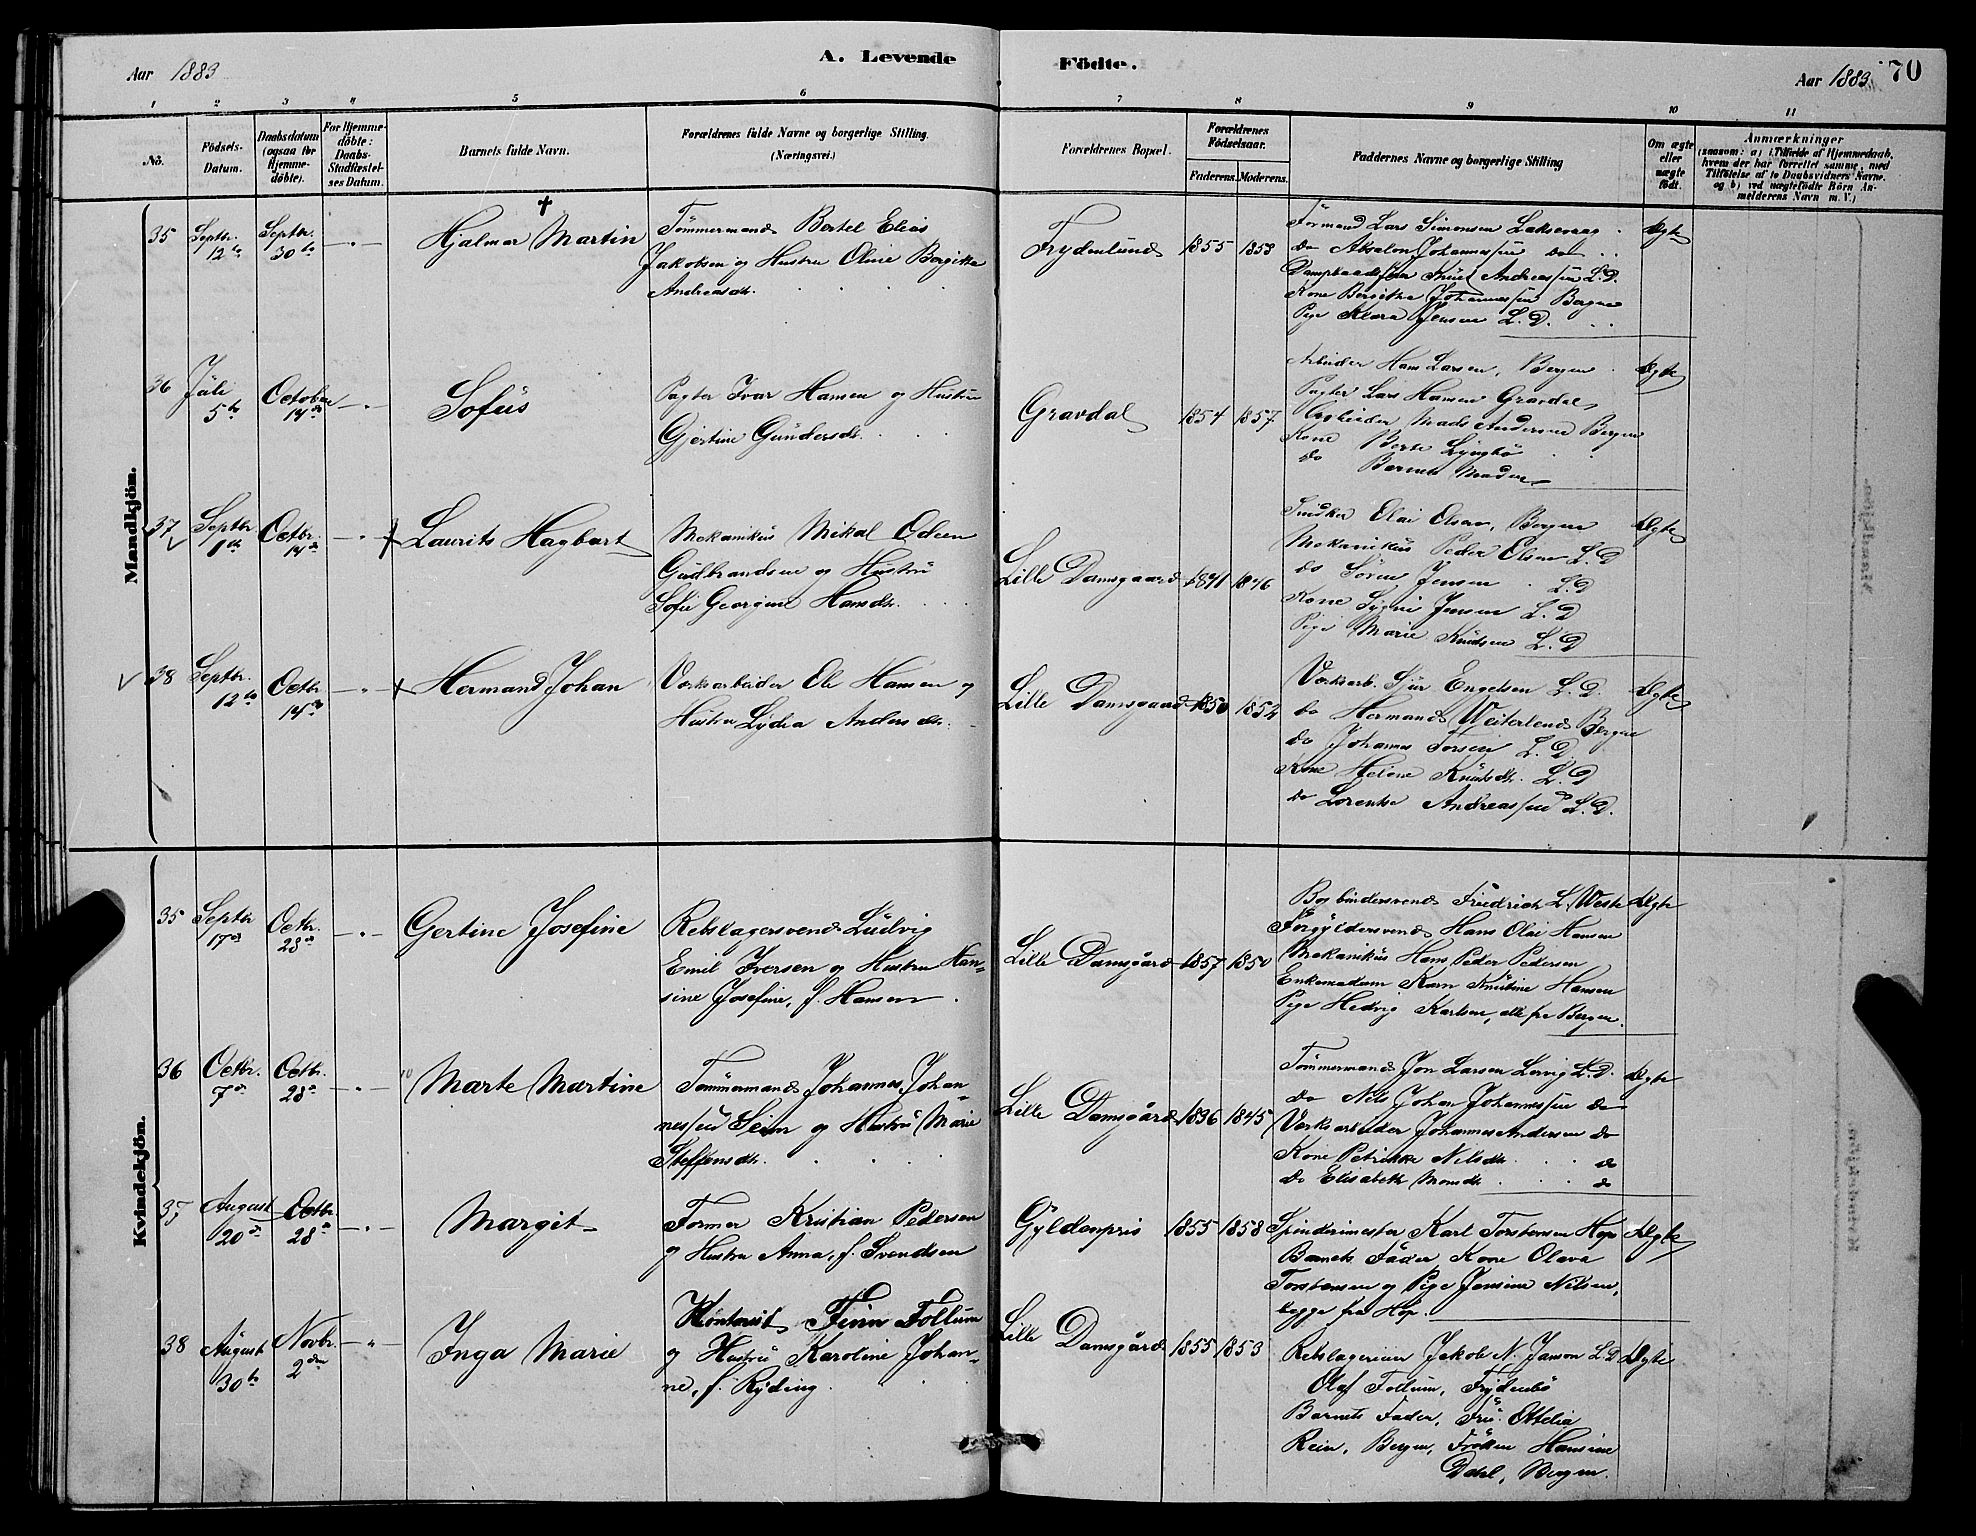 Aar 1883
A. Levende Födte.
Aar 1883
70
1 2 3 4 5 6 7 8 9 10 11
No.
Födsels-
Datum.
Daabsdatum
(ogsaa for
Hjemme-
döbte).
For Hjemme-
döbte:
Daabs-
Stadfæstel-
ses Datum.
Barnets fulde Navn.
Forældrenes fulde Navne og borgerlige Stilling.
(Næringsvei.)
Forældrenes Bopæl.
Forældrenes
Födselsaar.
Faderens. Moderens.
Faddernes Navne og borgerlige Stilling
Om ægte
eller
uægte
födt.
Anmærkninger
(saasom: a) i Tilfælde af Hjemmedaab,
hvem der har forrettet samme, med
Tilföielse af to Daabsvidners Navne,
og b) ved uægtefödte Börn An-
melderens Navn m. V.)
Mandkjön.
35
Septbr.
12te
Septbr.
30te
Hjalmar Martin
Tömmermand Bertel Elias
Jakobsen og Hustru Oline Bergitte
Andreasdr.
Frydenlund
1855
1858
Formand Lars Simonsen Laksevaag
do Absalon Johannessen do
Knut Andreassen L.D.
Kone Bergitha Johannessen Bergen
Pige Klara Jensen L.D.
Ægte
36
Juli
5te
October
14de
Sofus
Pagter Ivar Hansen og Hustru
Gjertine Gundersdr.
Gravdal
1854
1857
Arbeider Hans Larsen, Bergen
Pagter Lars Hansen Gravdal
Arbeider Mads Andersen Bergen
Kone Berte Lyngbö
do Barnets Moder
Ægte
37
Septbr.
1ste
Octbr.
14de
Laurits Hagbart
Mekanikus Mikal Odeen
Gudbrandsen og Hustru
Sofie Georgine Hansdr.
Lille Damsgaard
1841
1846
Snedker Elai Olsen, Bergen
Mekanikus Peder Olsen L.D
do Sören Jensen L.D
Kone Signe Jensen L.D
Pige Marie Knudsen L.D
Ægte
38
Septbr.
12te
Octbr.
14de
Hermand Johan
Værksarbeider Ole Hansen og
Hustru Lydia Andersdr.
Lille Damsgaard
1850
1852
Værksarb. Sjur Engelsen L.D.
do Hermand Weiterlend Bergen
do Johannes Torsen L.D
Kone Helene Knutsdr. L.D
do Lorentse Andreassen L.D.
Ægte
Kvindekjön.
35
Septbr
17de
Octbr.
28de
Gertine Josefine
Rebslagersvend Ludvig
Emil Iversen og Hustru Han-
sine Josefine, f. Hansen.
Lille Damsgård
1857
1850
Bogbindersvend Friedrich L. Weste
Forgyldersvend Hans Olai Hansen
Mekanikus Hans Peder Pedersen
Enkemadam Karn Kristine Hansen
Pige Hedvig Karlsen, alle fra Bergen.
Ægte
36
Octbr.
7de
Octbr.
28de
Marte Martine
Tömmermand Johannes Johan-
nessen Seim og Hustru Marie
Steffensdr.
Lille Damsgård
1836
1845
Tömmermand Jon Larsen Lervig L.D.
do Nils Johan Johannessen do
Værksarbeider Johannes Andersen do
Kone Petrikke Nilsdr. do
do Elisabeth Monsdr. do
Ægte
37
August
20de
Octbr.
28de
Margit
Former Kristian Pedersen
og Hustru Anna, f. Svendsen
Gyldenpris
1855
1858
Spinderimester Karl Torstensen Hop
Barnets Fader Kone Olava
Torstensen og Pige Jensine Nilsen,
begge fra Hop.
Ægte
38
August
30te
Novbr.
2den
Inga Marie
Kontorist Finn Follum
og Hustru Karoline Johan-
ne, f. Ryding.
Lille Damsgård
1855
1853
Rebslagerieier Jakob N. Janson L.D
Olaf Follum, Frydenbö
Barnets Fader, Fru Ottelia
Rein, Bergen, Fröken Hansine
Dahl, Bergen.
Ægte